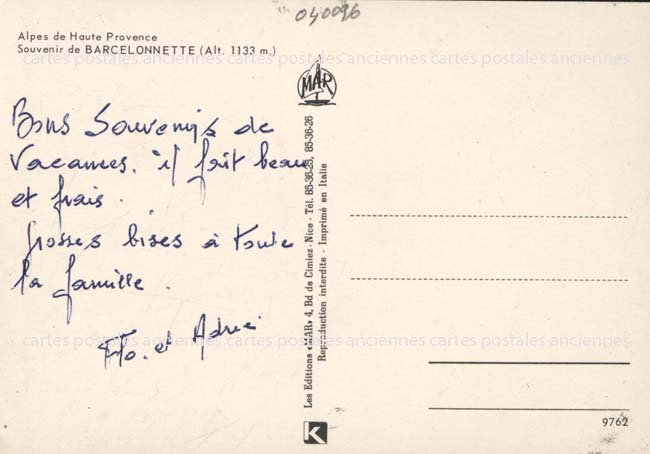 040096
Alpes de Haute Provence
Souvenir de BARCELONNETTE (Alt. 1133 m.)
cartes postales anciennes cartes postales anciennes cartes postales anciennes
MAR
Bons Souvenirs de
Vacances. il fait beau
et frais.
Grosses bises à toute
la famille.
Flo. et
Les Editions «MAR» 4, Bd de Cimiez - Nice - Tél. 85-36-25, 85-36-26
Reproduction interdite - Imprimé en Italie
cartes postales anciennes cartes postales anciennes cartes postales anciennes
K
9762